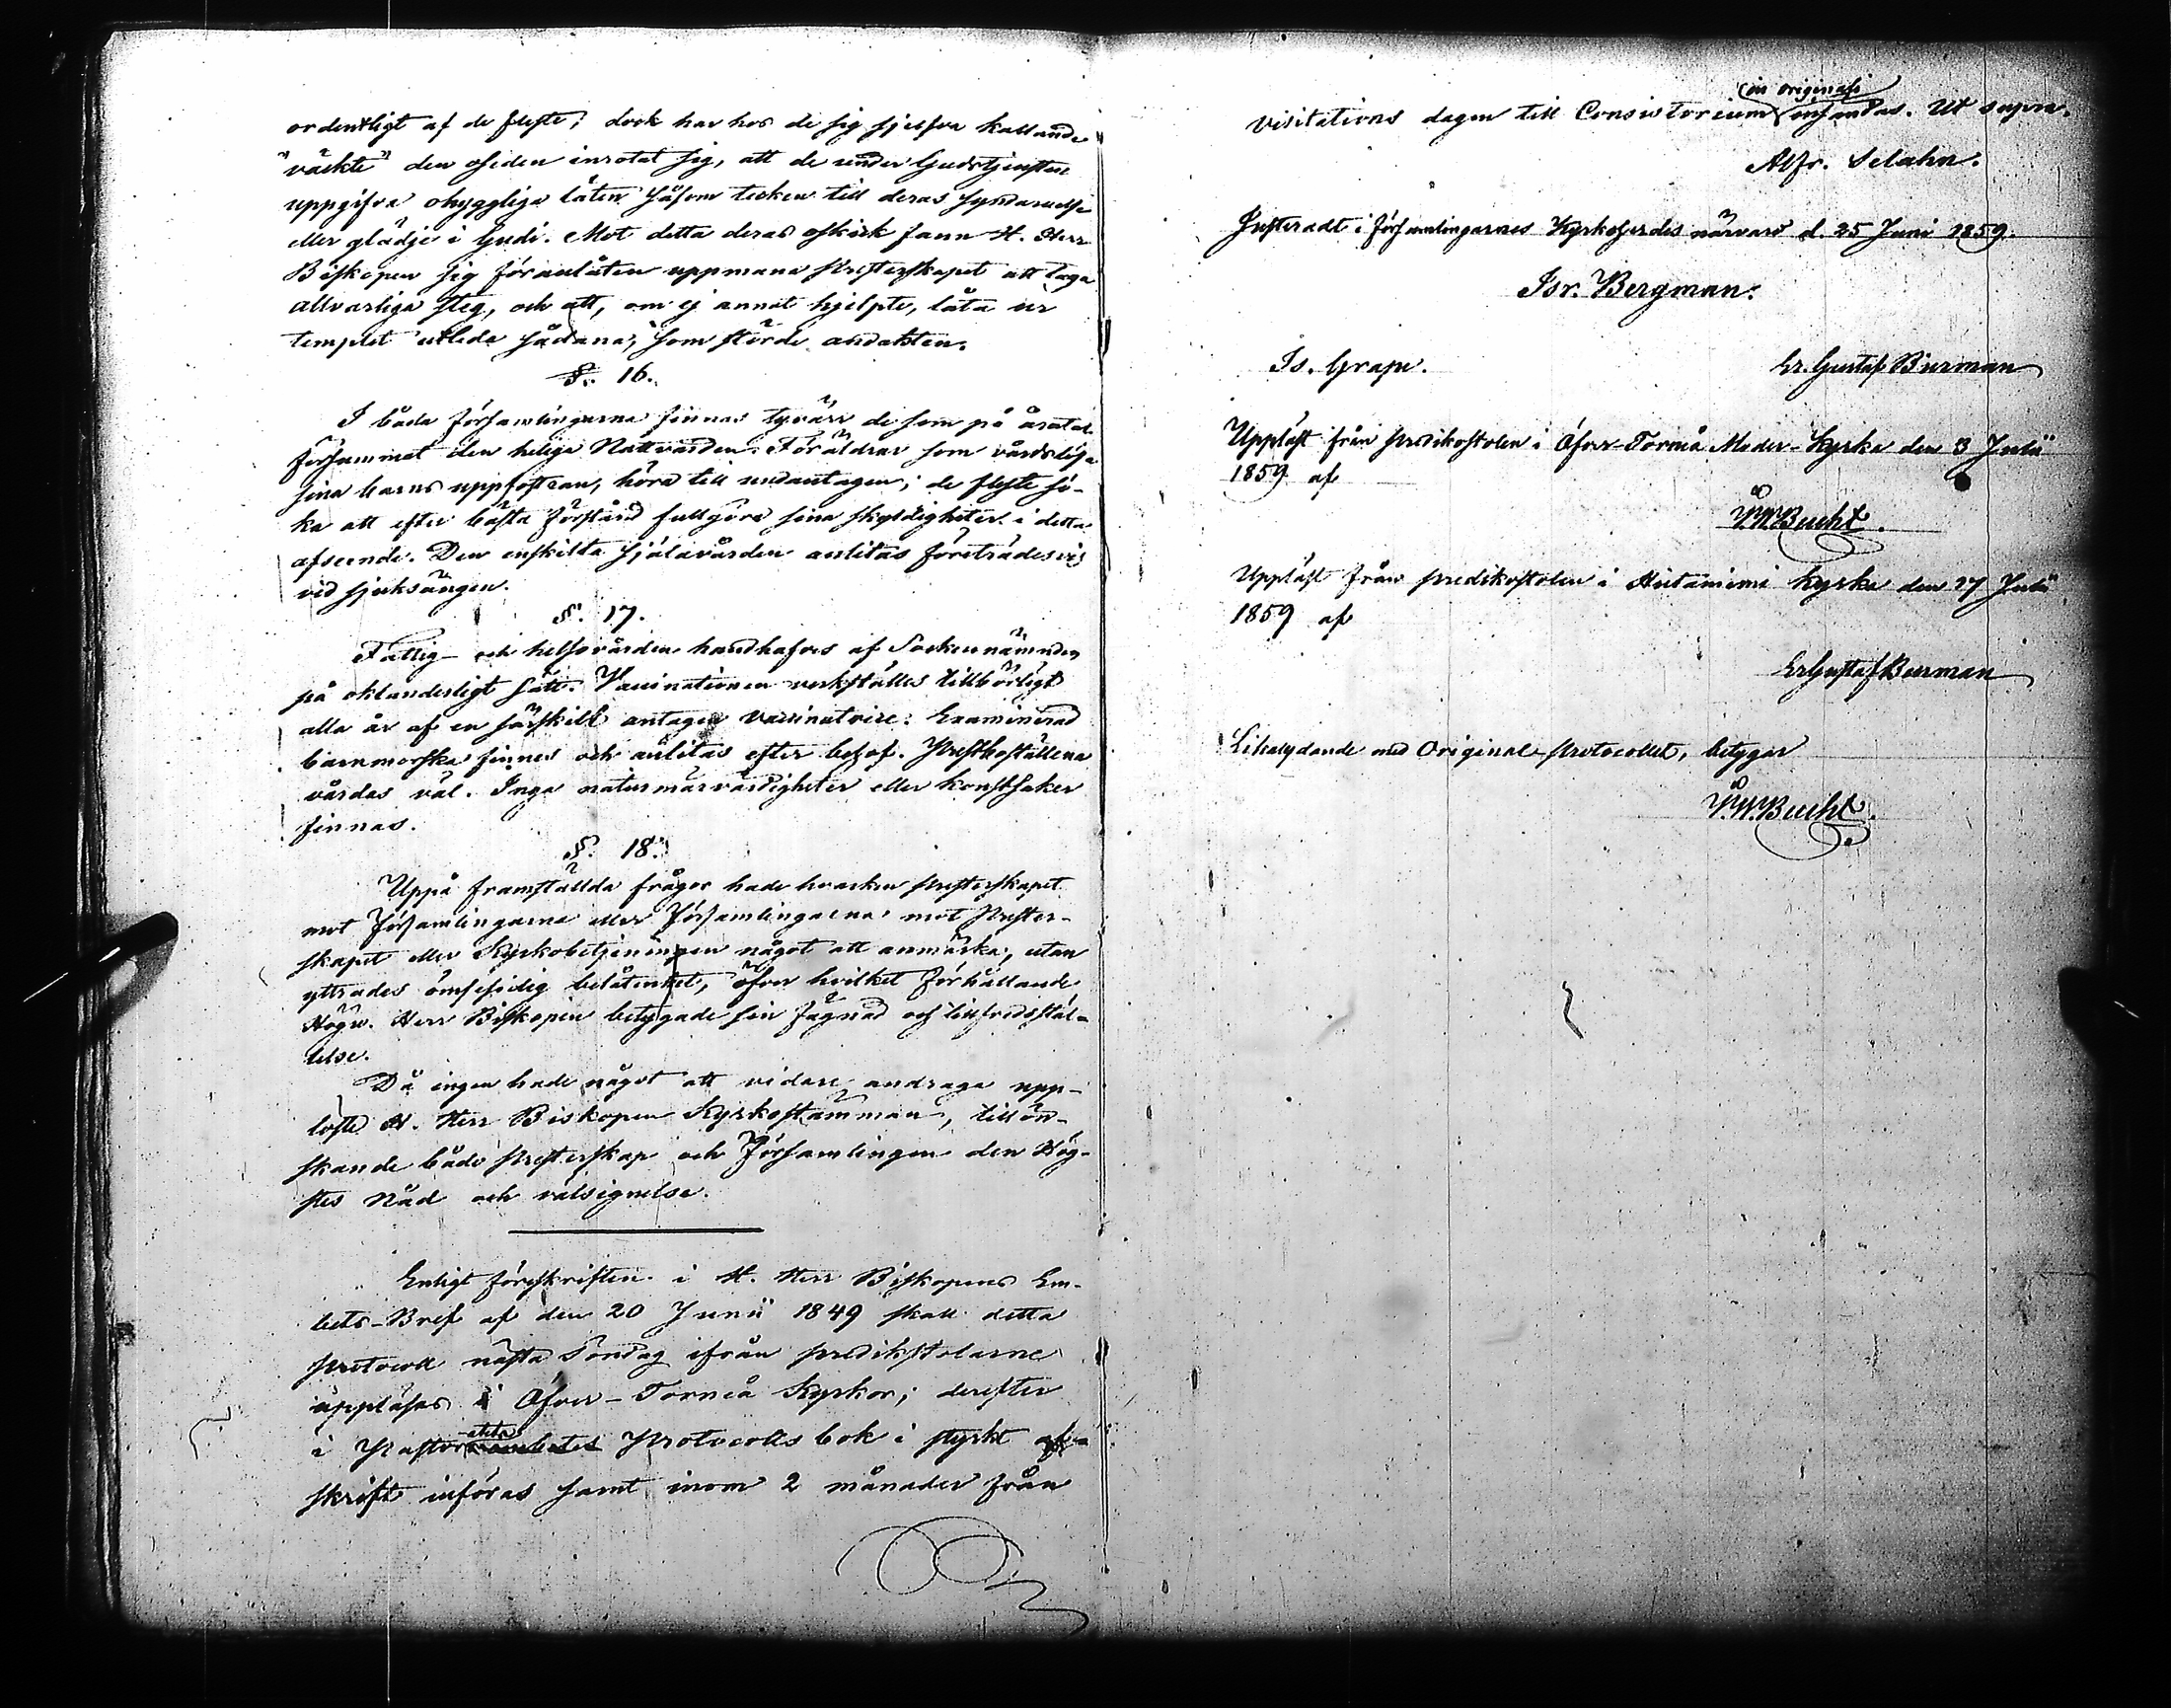 ordentligt af de fleste; dock har hos de sig sjelfva kallande
"väckte" den oseden inrotat sig, att de under Gudstjensten
uppgifva ohyggliga läten såsom tecken till deras syndaruelse
eller glädje i Gudi. Mot detta deras oskick fann H. Herr
Biskopen sig föranlåten uppmana Presterskapet att taga
allvarliga steg, och att, om ej annat hjelpte, låta ur
templet utleda sådana, som störde andakten.
§. 16.
I båda församlingarna finnas tyvärr de som på åratal
försummat den heliga Nattvarden. Föräldrar som vårdslösa
sina barns uppfostran, höra till undantagen; de fleste sö-
ka att efter bästa förstånd fullgöra sina skyldigheter i detta
afseende. Den enskilda sjelavården anlitas företrädesvis
vid sjuksängen.
§. 17.
Fattig- och helsovården handhafves af Sockennämnden
på oklanderligt sätt. Vaccinationen verkställes tillbörligt
alla år af en särskilt antagen vaccinatrice. Examinerad
barnmorska finnes och anlitas efter behof. Prestboställena
vårdas väl. Inga naturmärvärdigheter eller konstsaker
finnas.
§. 18.
Uppå framställda frågor hade hvarken Presterskapet
mot Församlingarna eller Församlingarna mot Prester-
skapet eller Kyrkobetjeningen något att anmärka, utan
yttrades ömsesidig belåtenhet, öfver hvilket förhållande
Högw. Herr Biskopen betygade sin fägnad och tillfredsstäl-
lelse.
Då ingen hade något att vidare andraga upp-
löste H. Herr Biskopen Kyrkostämman, tillön-
skande både Presterskap och Församlingen den Hög-
stes Nåd och välsignelse.
Enligt föreskriften i H. Herr Biskopens Em-
bets-Bref af den 20 Junii 1849 skall detta
Protocoll nästa Söndag ifrån predikstolarne
uppläsas i Öfver-Torneå Kyrkor; derefter
i Pastorats Protocolls bok i styrkt af-
skrift införas samt inom 2 månader från
visitations dagen till Consistorium in originali insändas. Ut supra.
Alfr.
Justeradt i Församlingarnes Kyrkoherdes närvaro d. 25 Juni 1859.
Isr. Bergman.
Is. Grape. Er. Gustaf Burman
Uppläst från predikostolen i Öfver-Torneå Moder-Kyrka den 3 Julii
1859 af
P.W. Bucht.
Uppläst från predikostolen i Hietaniemi Kyrka den 27 Julii
1859 af
Er Gustaf Burman
Likalydande med Original-Protocollet, betygar
P.W. Bucht.